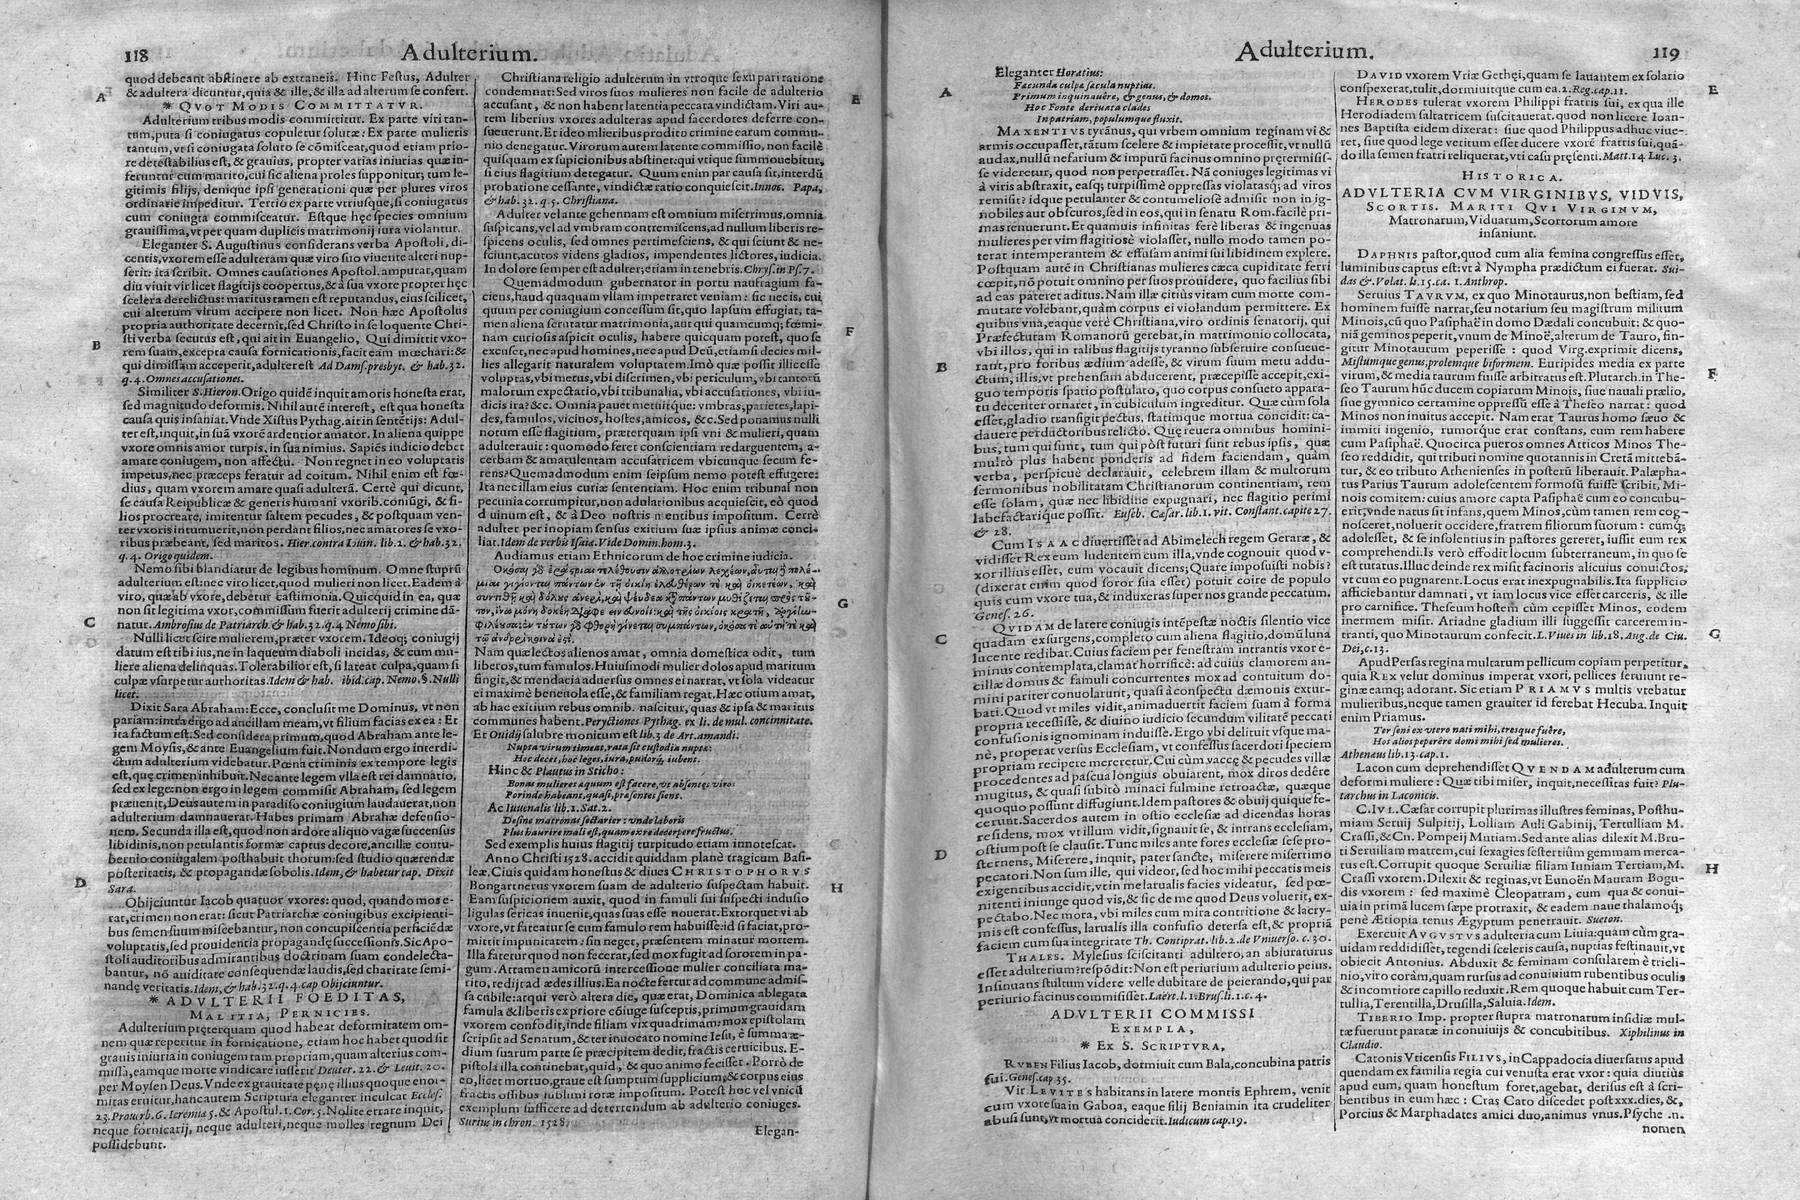 118
Adulterium.
quod debeant abstinere ab extraneis. Hinc Festus, Adulter
& adultera dicuntur, quia & ille, & illa ad alterum se confert.
* QVOT MODIS COMMITTATVR.
Adulterium tribus modis committitur. Ex parte viri tan-
tum, puta si coniugatus copuletur solutæ: Ex parte mulieris
tantum, vt si coniugata soluto se cōmisceat, quod etiam prio-
re detestabilius est, & grauius, propter varias iniurias quæ in-
feruntur cum marito, cui sic aliena proles supponitur; tum le-
gitimis filijs, denique ipsi generationi quæ per plures viros
ordinarie impeditur. Tertio ex parte vtriusque, si coniugatus
cum coniugta commisceatur. Estque hęc species omnium
grauissima, vt per quam duplicis matrimonij iura violantur.
Eleganter S. Augustinus considerans verba Apostoli, di-
centis, vxorem esse adulteram quæ viro suo viuente alteri nup-
serit: ita scribit. Omnes causationes Apostol. amputat, quam
diu viuit vir licet flagitijs coopertus, & à sua vxore propter hęc
scelera derelictus: maritus tamen est reputandus, eius scilicet,
cui alterum virum accipere non licet. Non hæc Apostolus
propria authoritate decernit, sed Christo in se loquente Chri-
sti verba secutus est, qui ait in Euangelio, Qui dimittit vxo-
rem suam, excepta causa fornicationis, facit eam mœchari: &
qui dimissam acceperit, adulter est Ad Dams. presbyt. & hab. 32.
q. 4. Omnes accusationes.
Similiter S. Hieron. Origo quidē inquit amoris honesta erat,
sed magnitudo deformis. Nihil autē interest, est qua honesta
causa quis insaniat. Vnde Xistus Pythag. ait in sentētijs: Adul-
ter est, inquit, in suā vxorē ardentior amator. In aliena quippe
vxore omnis amor turpis, in sua nimius. Sapiēs iudicio debet
amare coniugem, non affectu. Non regnet in eo voluptatis
impetus, nec præceps feratur ad coitum. Nihil enim est fœ-
dius, quam vxorem amare quasi adulterā. Certè qui dicunt,
se causa Reipublicæ & generis humani vxorib. coniūgi, & fi-
lios procreare, imitentur saltem pecudes, & postquam ven-
ter vxoris intumuerit, non perdant filios, nec amatores se vxo-
ribus præbeant, sed maritos. Hier. contra Iouin. lib. 2. & hab. 32.
q. 4. Origo quidem.
Nemo sibi blandiatur de legibus hominum. Omne stuprū
adulterium est: nec viro licet, quod mulieri non licet. Eadem à
viro, quæ ab vxore, debetur castimonia. Quicquid in ea, quæ
non sit legitima vxor, commissum fuerit adulterij crimine dā-
natur. Ambrosius de Patriarch. & hab. 32. q. 4 Nemo sibi.
Nulli licet scire mulierem, præter vxorem. Ideoq; coniugij
datum est tibi ius, ne in laqueum diaboli incidas, & cum mu-
liere aliena delinquas. Tolerabilior est, si lateat culpa, quam si
culpæ vsurpetur authoritas. Idem & hab. ibid. cap. Nemo. §. Nulli
licet.
Dixit Sara Abraham: Ecce, conclusit me Dominus, vt non
pariam: intra ergo ad ancillam meam, vt filium facias ex ea: Et
ita factum est. Sed considera primum, quod Abraham ante le-
gem Moysis, & ante Euangelium fuit. Nondum ergo interdi-
ctum adulterium videbatur. Pœna criminis ex tempore legis
est, quę crimen inhibuit. Nec ante legem vlla est rei damnatio,
sed ex lege: non ergo in legem commisit Abraham, sed legem
præuenit, Deus autem in paradiso coniugium laudauerat, non
adulterium damnauerat. Habes primam Abrahæ defensio-
nem. Secunda illa est, quod non ardore aliquo vagæ succensus
libidinis, non petulantis formæ captus decore, ancillæ contu-
bernio coniugalem posthabuit thorum: sed studio quærendæ
posteritatis, & propagandæ sobolis. Idem, & habetur cap. Dixit
Sara.
Obijciuntur Iacob quatuor vxores: quod, quando mos e-
rat, crimen non erat: sicut Patriarchæ coniugibus excipienti-
bus semen suum miscebantur, non concupiscentia perficiēdæ
voluptatis, sed prouidentia propagandę successionis. Sic Apo-
stoli auditoribus admirantibus doctrinam suam condelecta-
bantur, nō auiditate consequendæ laudis, sed charitate semi-
nandę veritatis. Idem, & hab. 32. q. 4. cap Obijciuntur.
* ADVLTERII FOEDITAS,
MALITIA, PERNICIES.
Adulterium pręterquam quod habeat deformitatem om-
nem quæ reperitur in fornicatione, etiam hoc habet quod sit
grauis iniuria in coniugem tam propriam, quam alterius com-
missa, eamque morte vindicare iusserit Deuter. 22. & Leuit. 20.
per Moysen Deus. Vnde ex grauitate pęnę illius quoque enor-
mitas eruitur, hanc autem Scriptura eleganter inculcat Eccles.
23. Prouerb. 6. Ieremia 5. & Apostul. 1. Cor. 5. Nolite errare inquit,
neque fornicarij, neque adulteri, neque molles regnum Dei
possidebunt.
A
B
C
D
Christiana religio adulterum in vtroque sexu pari ratione
condemnat: Sed viros suos mulieres non facile de adulterio
accusant, & non habent latentia peccata vindictam. Viri au-
tem liberius vxores adulteras apud sacerdotes deferre con-
sueuerunt. Et ideo mlieribus prodito crimine earum commu-
nio denegatur. Virorum autem latente commissio, non facilè
quisquam ex supicionibus abstinet: qui vtique summouebitur,
si eius flagitium detegatur. Quum enim par causa sit, interdū
probatione cessante, vindictæ ratio conquiescit. Innoc. Papa,
& hab. 32. q. 5. Christiana.
Adulter vel ante gehennam est omnium miserrimus, omnia
suspicans, vel ad vmbram contremiscens, ad nullum liberis re-
spicens oculis, sed omnes pertimescens, & qui sciunt & ne-
sciunt, acutos videns gladios, impendentes lictores, iudicia.
In dolore semper est adulter; etiam in tenebris. Chrys. in Ps. 7.
Quemadmodum gubernator in portu naufragium fa-
ciens, haud quaquam vllam impetraret veniam: sic necis, cui
quum per coniugium concessum sit, quo lapsum effugiat, ta-
men aliena scrutatur matrimonia, aut qui quamcumq; fœmi-
nam curiosis aspicit oculis, habere quicquam potest, quo se
excuset, nec apud homines, nec apud Deū, etiamsi decies mil-
lies allegarit naturalem voluptatem. Imò quæ possit illic esse
voluptas, vbi metus, vbi discrimen, vbi periculum, vbi tantorū
malorum expectatio, vbi tribunalia, vbi accusationes, vbi iu-
dicis ira? &c. Omnia pauet metuitque: vmbras, parietes, lapi-
des, famulos, vicinos, hostes, amicos, &c. Sed ponamus nulli
notum esse flagitium, præterquam ipsi vni & mulieri, quam
adulterauit: quomodo feret conscientiam redarguentem, a-
cerbam & amarulentam accusatricem vbicunque secum fe-
rens? Quemadmodum enim seipsum nemo potest effugere:
Ita nec illam eius curiæ sententiam. Hoc enim tribunal non
pecunia corrumpitur, non adulationibus acquiescit, eò quod
diuinum est, & à Deo nostris mentibus impositum. Certè
adulter per inopiam sensus exitium suæ ipsius animæ conci-
liat. Idem de verbis Isaia. Vide Domin. hom. 3.
Audiamus etiam Ethnicorum de hoc crimine iudicia.
Nam quæ lectos alienos amat, omnia domestica odit, tum
liberos, tum famulos. Huiusmodi mulier dolos apud maritum
fingit, & mendacia aduersus omnes ei narrat, vt sola videatur
ei maximè beneuola esse, & familiam regat. Hæc otium amat,
ab hac exitium rebus omnib. nascitur, quas & ipsa & maritus
communes habent. Peryctiones Pythag. ex li. de mul. concinnitate.
Et Ouidij salubre monitum est lib. 3 de Art. amandi.
Nupta virum timeat, rata sit custodia nuptæ:
Hoc decet, hoc leges, iura, pudorq; iubent.
Hinc & Plautus in Sticho:
Bonas mulieres aquum est facere, vt absentes viros
Perinde habeant, quasi, præsentes sient.
Ac Iuuenalis lib. 1. Sat. 2.
Desine matronas sectarier: vnde laboris
Plus haurire mali est, quam ex re decerpere fructus.
Sed exemplis huius flagitij turpitudo etiam innotescat.
Anno Christi 1528. accidit quiddam planè tragicum Basi-
leæ. Ciuis quidam honestus & diues CHRISTOPHORVS
Bongartnerus vxorem suam de adulterio suspectam habuit.
Eam suspicionem auxit, quod in famuli sui suspecti indusio
ligulas sericas inuenit, quas suas esse nouerat. Extorquet vi ab
vxore, vt fateatur se cum famulo rem habuisse: id si faciat, pro-
mittit impunitatem: sin neget, præsentem minatur mortem.
Illa fatetur quod non fecerat, sed mox fugit ad sororem in pa-
gum. Attamen amicorū intercessione mulier conciliata ma-
rito, redijt ad ædes illius. Ea nocte fertur ad commune admis-
sa cubile: at qui verò altera die, quæ erat, Dominica ablegata
famula & liberis ex priore cōiuge susceptis, primum grauidam
vxorem confodit, inde filiam vix quadrimam; mox epistolam
scripsit ad Senatum, & ter inuocato nomine Iesu, è summa æ-
dium suarum parte se præcipitem dedit, fractis ceruicibus. E-
pistola illa continebat, quid, & quo animo fecisset. Porrò de
eo, licet mortuo, graue est sumptum supplicium, & corpus eius
fractis ossibus sublimi rotæ impositum. Potest hoc vel vnicū
exemplum sufficere ad deterrendum ab adulterio coniuges.
Surius in chron. 1528.
Elegan-
E
F
G
H
Adulterium.
119
Eleganter Horatius:
Fæcunda culpa sæcula nuptias.
Primum inquinauere, & genus, & domos.
Hoc Fonte deriuata clades
In patriam, populumque fluxit.
MAXENTIVS tyrānus, qui vrbem omnium reginam vi &
armis occupasset, tātum scelere & impietate processit, vt nullū
audax, nullū nefarium & impurū facinus omnino prętermisis-
se videretur, quod non perpetrasset. Nā coniuges legitimas vi
à viris abstraxit, easq; turpissimè oppressas violatasq; ad viros
remisit? idque petulanter & contumeliosè admisit non in ig-
nobiles aut obscuros, sed in eos, qui in senatu Rom. facilè pri-
mas tenuerunt. Et quamuis infinitas ferè liberas & ingenuas
mulieres per vim flagitiosè violasset, nullo modo tamen po-
terat intemperantem & effusam animi sui libidinem explere.
Postquam autē in Christianas mulieres cæca cupiditate ferri
cœpit, nō potuit omnino per suos prouidere, quo facilius sibi
ad eas pateret aditus. Nam illæ citiùs vitam cum morte com-
mutare volebant, quàm corpus ei violandum permittere. Ex
quibus vna, eaque verè Christiana, viro ordinis senatorij, qui
Præfecturam Romanorū gerebat, in matrimonio collocata,
vbi illos, qui in talibus flagitijs tyranno subseruire consueue-
rant, pro foribus ædium adesse, & virum suum metu addu-
ctum, illis, vt prehensam abducerent, præcepisse accepit, exi-
guo temporis spatio postulato, quo corpus consueto appara-
tu decenter ornaret, in cubiculum ingreditur. Quæ cùm sola
esset, gladio transigit pectus, statimque mortua concidit: ca-
dauere perductoribus relicto. Quę reuera omnibus homini-
bus, tum qui sunt, tum qui pòst futuri sunt rebus ipsis, quæ
multò plus habent ponderis ad fidem faciendam, quàm
verba, perspicuè declarauit, celebrem illam & multorum
sermonibus nobilitatam Christianorum continentiam, rem
esse solam, quæ nec libidine expugnari, nec flagitio perimi
labefactarique possit. Euseb. Cæsar. lib. 1. vit. Constant. capite 27.
& 28.
Cum ISAAC diuertisset ad Abimelech regem Geraræ, &
vidisset Rex eum ludentem cum illa, vnde cognouit quod v-
xor illius esset, eum vocauit dicens; Quare imposuisti nobis?
(dixerat enim quod soror sua esset) potuit coire de populo
quis cum vxore tua, & induxeras super nos grande peccatum.
Genes. 26.
QVIDAM de latere coniugis intēpestæ noctis silentio vice
quadam exsurgens, completo cum aliena flagitio, domū luna
lucente redibat. Cuius faciem per fenestram intrantis vxor è-
minus contemplata, clamat horrificè: ad cuius clamorem an-
cillæ domus & famuli concurrentes mox ad contuitum do-
mini pariter conuolarunt, quasi à conspectu dæmonis extur-
bati. Quod vt miles vidit, animaduertit faciem suam à forma
propria recessisse, & diuino iudicio secundum vilitatē peccati
confusionis ignominam induisse. Ergo vbi delituit vsque ma-
nè, properat versus Ecclesiam, vt confessus sacerdoti speciem
propriam recipere mereretur. Cui cùm vaccę & pecudes villæ
procedentes ad pascua longius obuiarent, mox diros dedēre
mugitus, & quasi subitò minaci fulmine retroactæ, quæque
quoquo possunt diffugiunt. Idem pastores & obuij quique fe-
cerunt. Sacerdos autem in ostio ecclesiæ ad dicendas horas
residens, mox vt illum vidit, signauit se, & intrans ecclesiam,
ostium post se clausit. Tunc miles ante fores ecclesiæ sese pro-
sternens, Miserere, inquit, pater sancte, miserere miserrimo
peccatori. Non sum ille, qui videor, sed hoc mihi peccatis meis
exigentibus accidit, vt in me larualis facies videatur, sed pœ-
nitenti iniunge quod vis, & sic de me quod Deus voluerit, ex-
pectabo. Nec mota, vbi miles cum mira contritione & lacry-
mis est confessus, larualis illa confusio detersa est, & propriā
faciem cum sua integritate Th. Contiprat. lib. 2. de Vniuerso. c. 30.
THALES. Mylesius sciscitanti adultero, an abiuraturus
esset adulterium? respōdit: Non est periurium adulterio peius.
Insinuans stultum videre velle dubitare de peierando, qui par
periurio facinus commisisset. Laërt. l. 1. Brus. li. 1. c. 4.
ADVLTERII COMMISSI
EXEMPLA,
* EX S. SCRIPTVRA,
RVBEN Filius Iacob, dormiuit cum Bala, concubina patris
sui. Genes. cap 35.
Vir LEVITES habitans in latere montis Ephrem, venit
cum vxore sua in Gaboa, eaque filij Beniamin ita crudeliter
abusi sunt, vt mortua conciderit. Iudicum cap. 19.
A
B
C
D
DAVID vxorem Vriæ Gethęi, quam se lauantem ex solario
conspexerat, tulit, dormiuitque cum ea. 2. Reg. cap. 11.
HERODES tulerat vxorem Philippi fratris sui, ex qua ille
Herodiadem saltatricem suscitauerat. quod non licere Ioan-
nes Baptista eidem dixerat: siue quod Philippus adhuc viue-
ret, siue quod lege vetitum esset ducere vxorē fratris sui, quā-
do illa semen fratri reliquerat, vti casu pręsenti. Matt. 14 Luc. 3.
HISTORICA.
ADVLTERIA CVM VIRGINIBVS, VIDVIS,
SCORTIS. MARITI QVI VIRGINVM,
Matronarum, Viduarum, Scortorum amore
insaniunt.
DAPHNIS pastor, quod cum alia femina congressus esset,
luminibus captus est: vt à Nympha prædictum ei fuerat. Sui-
das & Volat. li. 15. ca. 1. Anthrop.
Seruius TAVRVM, ex quo Minotaurus, non bestiam, sed
hominem fuisse narrat, seu notarium seu magistrum militum
Minois, cū quo Pasiphaë in domo Dædali concubuit: & quo-
niā geminos peperit, vnum de Minoë, alterum de Tauro, fin-
gitur Minotaurum peperisse: quod Virg. exprimit dicens,
Mistumque genus, prolemque biformem. Euripides media ex parte
virum, & media taurum fuisse arbitratus est. Plutarch. in The-
seo Taurum hūc ducem copiarum Minois, siue nauali prælio,
siue gymnico certamine oppressū esse à Theseo narrat: quod
Minos non inuitus accepit. Nam erat Taurus homo sæuo &
immiti ingenio, rumorque erat constans, eum rem habere
cum Pasiphaë. Quocirca pueros omnes Atticos Minos The-
seo reddidit, qui tributi nomine quotannis in Cretā mittebā-
tur, & eo tributo Athenienses in posterū liberauit. Palæpha-
tus Parius Taurum adolescentem formosū fuisse scribit, Mi-
nois comitem: cuius amore capta Pasiphaë cum eo concubu-
erit; vnde natus sit infans, quem Minos, cùm tamen rem cog-
nosceret, noluerit occidere, fratrem filiorum suorum: cumq;
adolesset, & se insolentius in pastores gereret, iussit eum rex
comprehendi. Is verò effodit locum subterraneum, in quo se
est tutatus. Illuc deinde rex misit facinoris alicuius conuictos,
vt cum eo pugnarent. Locus erat inexpugnabilis. Ita supplicio
afficiebantur damnati, vt iam locus vice esset carceris, & ille
pro carnifice. Theseum hostem cùm cepisset Minos, eodem
inermem misit. Ariadne gladium illi suggessit carcerem in-
tranti, quo Minotaurum confecit. L. Viues in lib. 18. Aug. de Ciu.
Dei, c. 13.
Apud Persas regina multarum pellicum copiam perpetitur,
quia REX velut dominus imperat vxori, pellices seruiunt re-
ginæ eamq; adorant. Sic etiam PRIAMVS multis vtebatur
mulieribus, neque tamen grauiter id ferebat Hecuba. Inquit
enim Priamus.
Ter seni ex vtero nati mihi, tresque fuêre,
Hos alios peperêre domi mihi sed mulieres.
Atheneus lib. 13. cap. 1.
Lacon cum deprehendisset QVENDAM adulterum cum
deformi muliere: Quæ tibi miser, inquit, necessitas fuit? Plu-
tarchus in Laconicis.
C. IVL. Cæsar corrupit plurimas illustres feminas, Posthu-
miam Seruij Sulpitij, Lolliam Auli Gabinij, Tertulliam M.
Crassi, & Cn. Pompeij Mutiam. Sed ante alias dilexit M. Bru-
ti Seruiliam matrem, cui sexagies sestertiûm gemmam merca-
tus est. Corrupit quoque Seruiliæ filiam Iuniam Tertiam, M.
Crassi vxorem. Dilexit & reginas, vt Eunoën Mauram Bogu-
dis vxorem: sed maximè Cleopatram, cum qua & conui-
uia in primā lucem sæpe protraxit, & eadem naue thalamoq;
penè Ætiopia tenus Ægyptum penetrauit. Sueton.
Exercuit AVGVSTVS adulteria cum Liuia: quam cùm gra-
uidam reddidisset, tegendi sceleris causa, nuptias festinauit, vt
obiecit Antonius. Abduxit & feminam consularem è tricli-
nio, viro corām, quam rursus ad conuiuium rubentibus oculis
& incomtiore capillo reduxit. Rem quoque habuit cum Ter-
tullia, Terentilla, Drusilla, Saluia. Idem.
TIBERIO Imp. propter stupra matronarum insidiæ mul-
tæ fuerunt paratæ in conuiuijs & concubitibus. Xiphilinus in
Claudio.
Catonis Vticensis FILIVS, in Cappadocia diuersatus apud
quendam ex familia regia cui venusta erat vxor: quia diutiùs
apud eum, quam honestum foret, agebat, derisus est à scri-
bentibus in eum hæc: Cras Cato discedet post xxx. dies, &,
Porcius & Marphadates amici duo, animus vnus. Psyche .n.
nomen
E
F
G
H